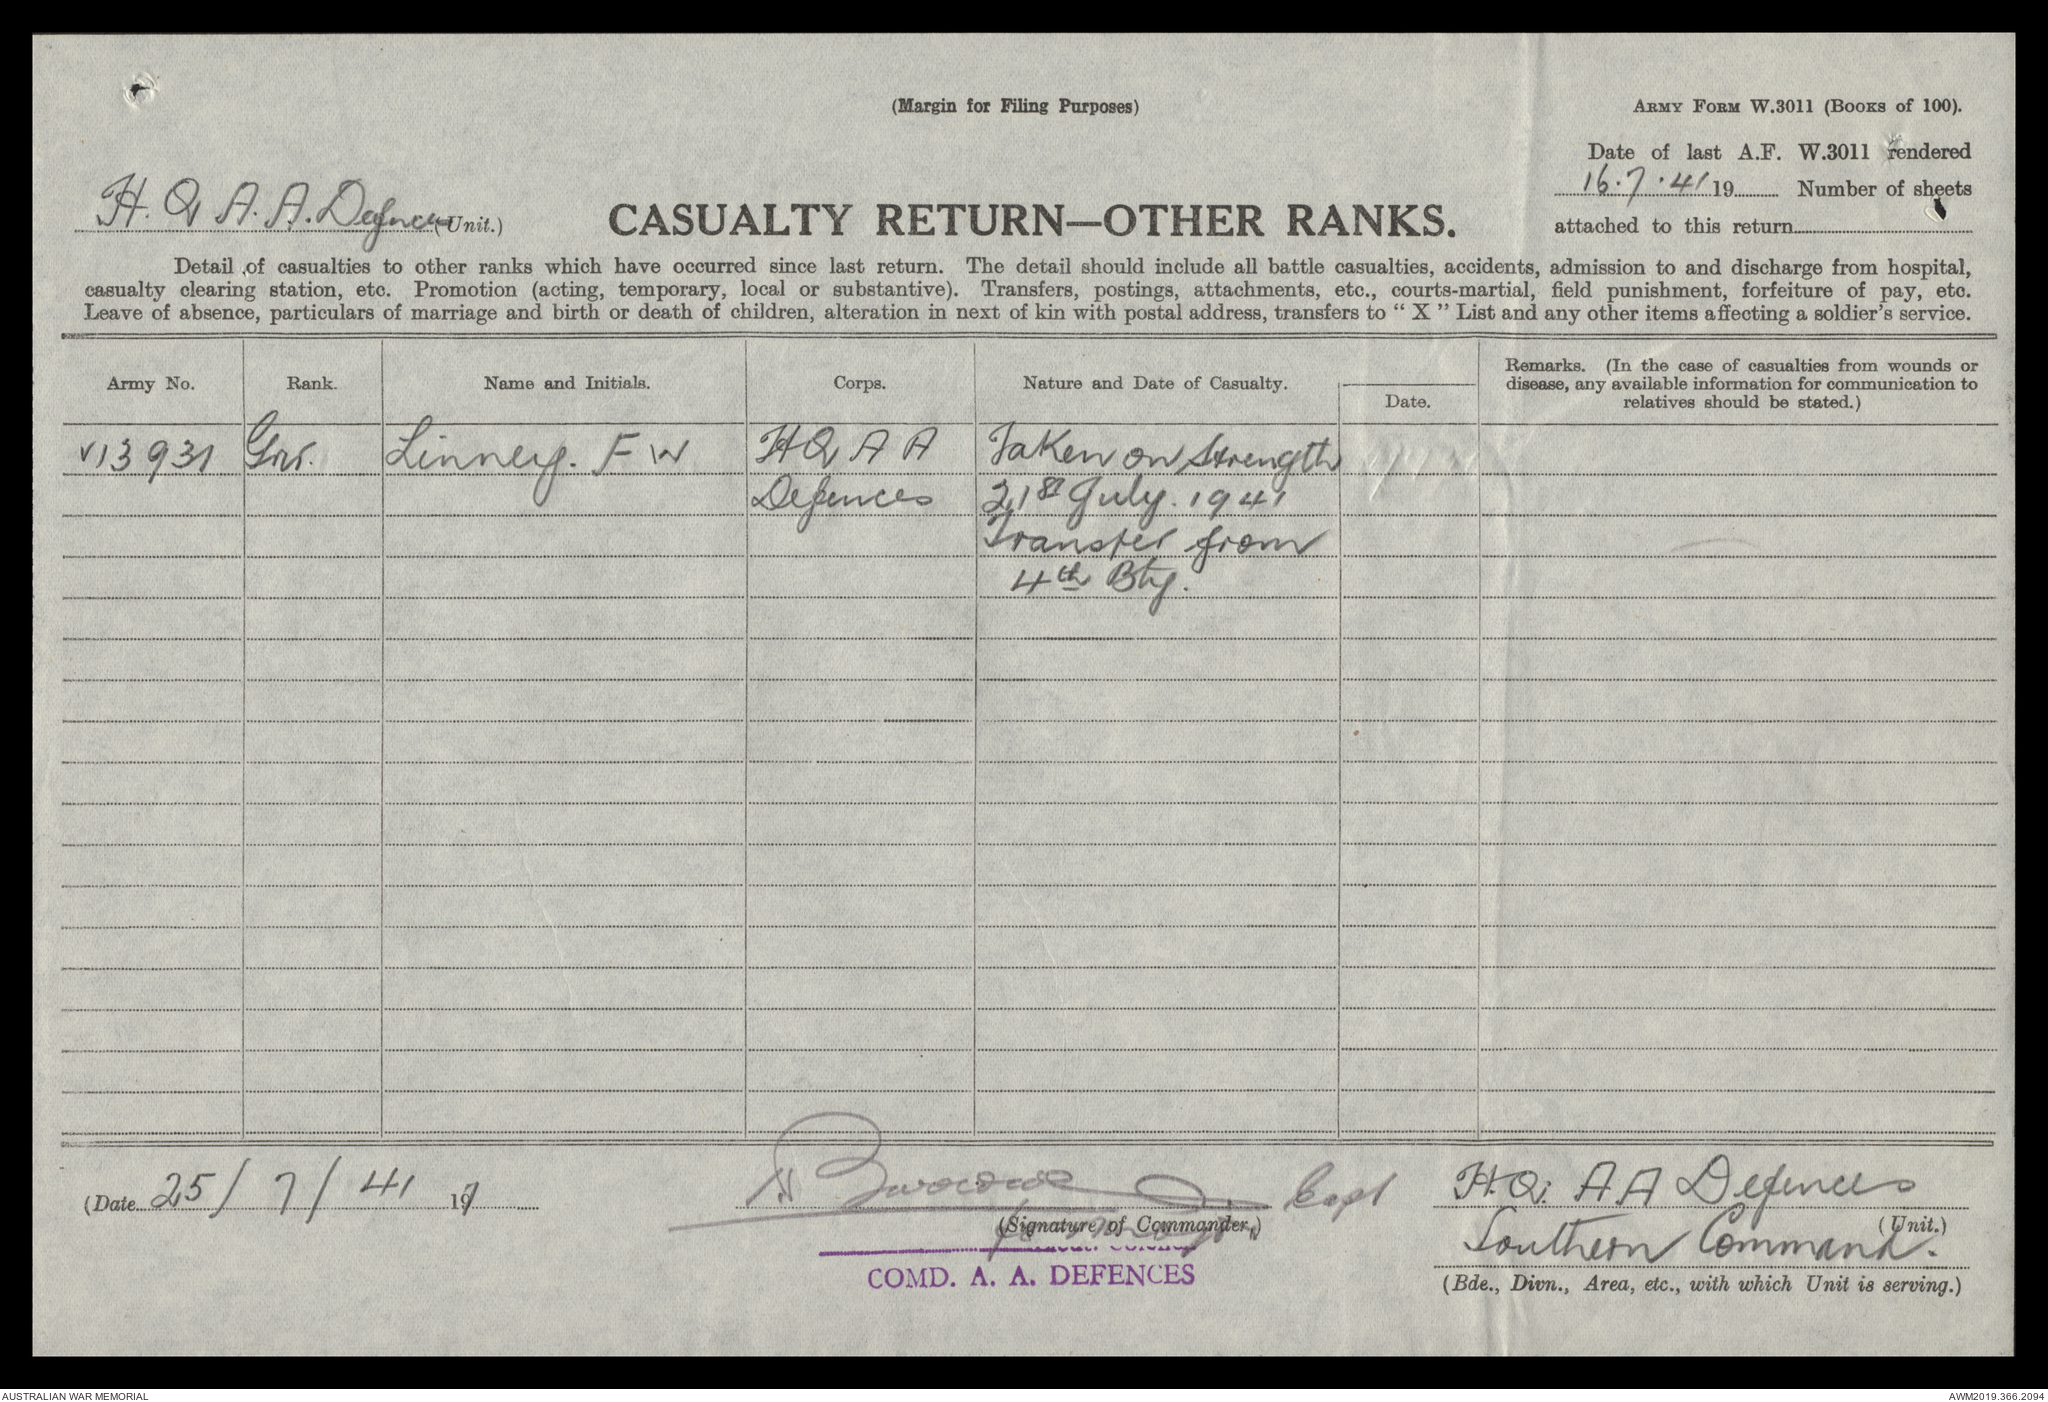 (Margin for Filing Purposes)
ARMY FORM W.3011 (BOOKS of 100).
Date of last A.F. W.3011 rendered
16.7.41 19 Number of sheets
attached to this return
H.Q A.A. Defences (Unit.)
CASUALTY RETURN—OTHER RANKS.
Detail of casualties to other ranks which have occurred since last return. The detail should include all battle casualties, accidents, admission to and discharge from hospital,
casualty clearing station, etc. Promotion (acting, temporary, local or substantive). Transfers, postings, attachments, etc., courts-martial, field punishment, forfeiture of pay, etc.
Leave of absence, particulars of marriage and birth or death of children, alteration in next of kin with postal address, transfers to “ X ” List and any other items affecting a soldier's service.
Army No. Rank. Name and Initials. Corps. Nature and Date of Casualty. Date.
Remarks. (In the case of casualties from wounds or
disease, any available information for communication to
relatives should be stated.)
V13931 Gnr. Linney. F W H Q A A Taken on Strength
Defences 21st July. 1941
Transfer from
4th Bty.
(Date 25/7/41 19
Capt
(Signature of Commander.)
Lieut. Colonel
COMD. A. A. DEFENCES
H.Q. A A Defences
(Unit.)
Southern Command.
(Bde., Divn., Area, etc., with which Unit is serving.)
AUSTRALIAN WAR MEMORIAL
AWM2019.366.2094